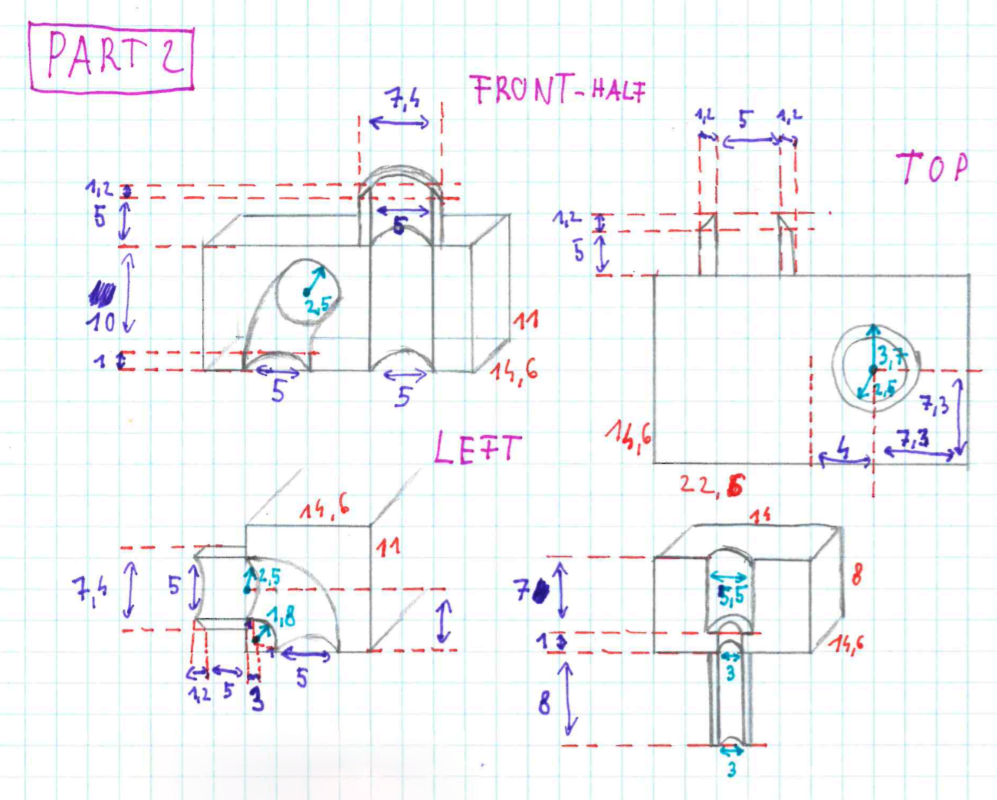 PART 2
FRONT-HALF
7,4
1,2
5
5
10
1
2,5
5
5
11
14,6
TOP
1,2 5 1,2
1,2
5
3,7
2,5
7,3
4
7,3
14,6
22,6
LEFT
14,6
11
7,4
5
2,5
1,8
1
1
5
1,2 5 3
14
8
7
5,5
1
14,6
3
8
3